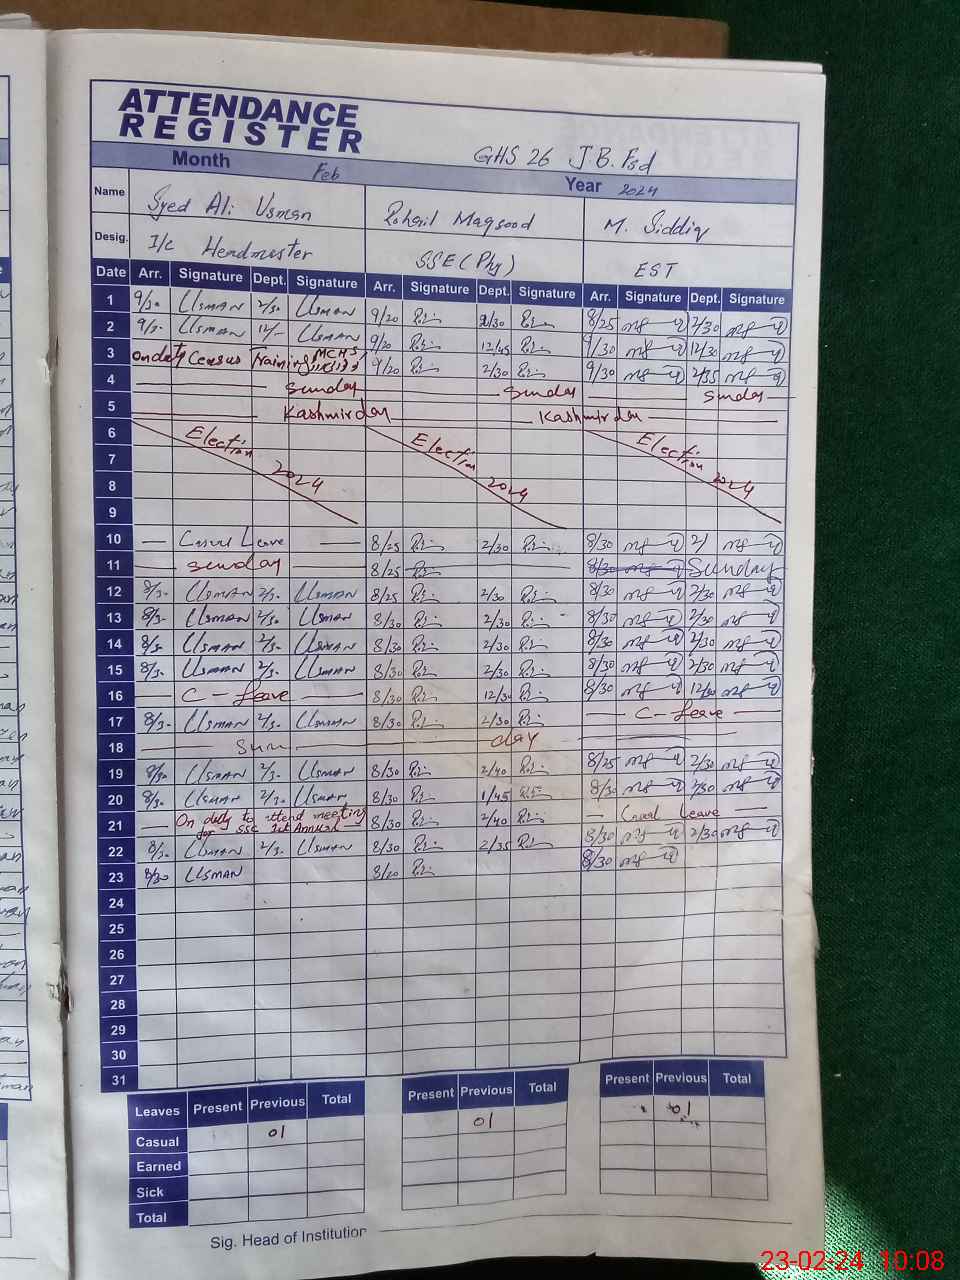 ATTENDANCE
REGISTER
GHS 26 J.B. Fsd
Month Feb Year 2024
Name Syed Ali Usman Rohail Maqsood M. Siddiq
Desig. I/c Headmaster SSE (Phy) EST
Date Arr. Signature Dept. Signature Arr. Signature Dept. Signature Arr. Signature Dept. Signature
1 9/30 USMAN 2/30 USMAN 9/20 2/30 8/25 2/30
2 9/30 USMAN 12/- USMAN 9/20 12/45 9/30 12/30
3 on duty Census Training MCHS 9/20 2/30 9/30 2/35
4 Sunday Sunday Sunday
5 Kashmir day Kashmir day
6 Election 2024 Election 2024 Election 2024
7
8
9
10 Casual Leave 8/25 2/30 8/30 2/
11 Sunday 8/25 8/30 Sunday
12 8/30 USMAN 2/30 USMAN 8/25 2/30 8/30 2/30
13 8/30 USMAN 2/30 USMAN 8/30 2/30 8/30 2/30
14 8/30 USMAN 2/30 USMAN 8/30 2/30 8/30 2/30
15 8/30 USMAN 2/30 USMAN 8/30 2/30 8/30 2/30
16 C - Leave 8/30 12/30 8/30
17 8/30 USMAN 2/30 USMAN 8/30 2/30 C - Leave
18 Sun day
19 8/30 USMAN 2/30 USMAN 8/30 2/40 8/25 2/30
20 8/30 USMAN 2/30 USMAN 8/30 1/45 8/30 2/30
21 On duty to attend meeting for SSC 1st Annual 8/30 2/40 Casual Leave
22 8/30 USMAN 2/30 USMAN 8/30 2/35 8/30 2/30
23 8/30 USMAN 8/20 8/30
24
25
26
27
28
29
30
31
Leaves Present Previous Total Present Previous Total Present Previous Total
Casual 01 01 01
Earned
Sick
Total
Sig. Head of Institution
23-02-24 10:08